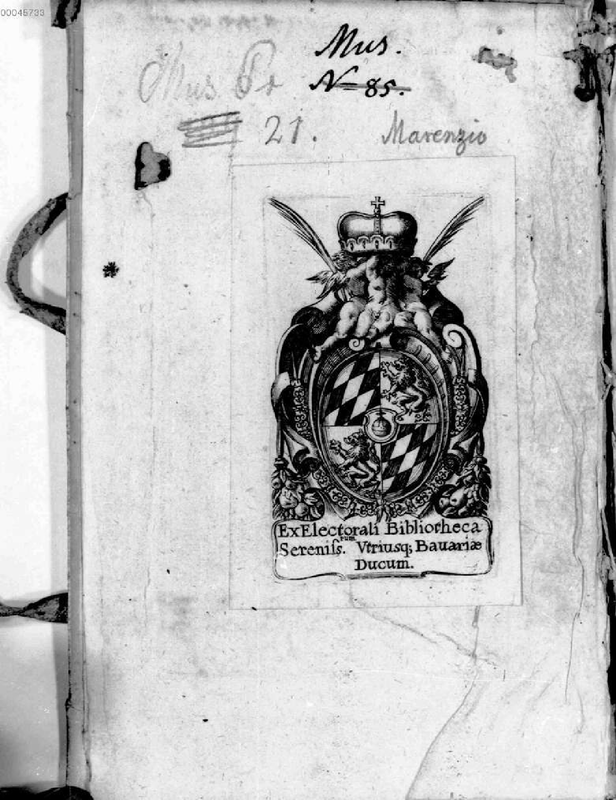 00045733
Mus.
Mus. Pr
N= 85.
21. Marenzio
Ex Electorali Bibliotheca
Sereniſs.rum Vtriusq; Bauariæ
Ducum.